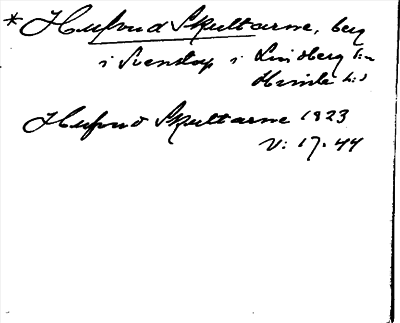 * Hufvud Skuttarne, berg
i Svenstorp i Lindberg sn
Himle hd
Hufvud Skuttarne 1823
V: 17. 44